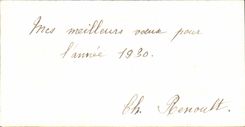 Mes meilleurs vœux pour
l'année 1930.
Ch. Renoult.